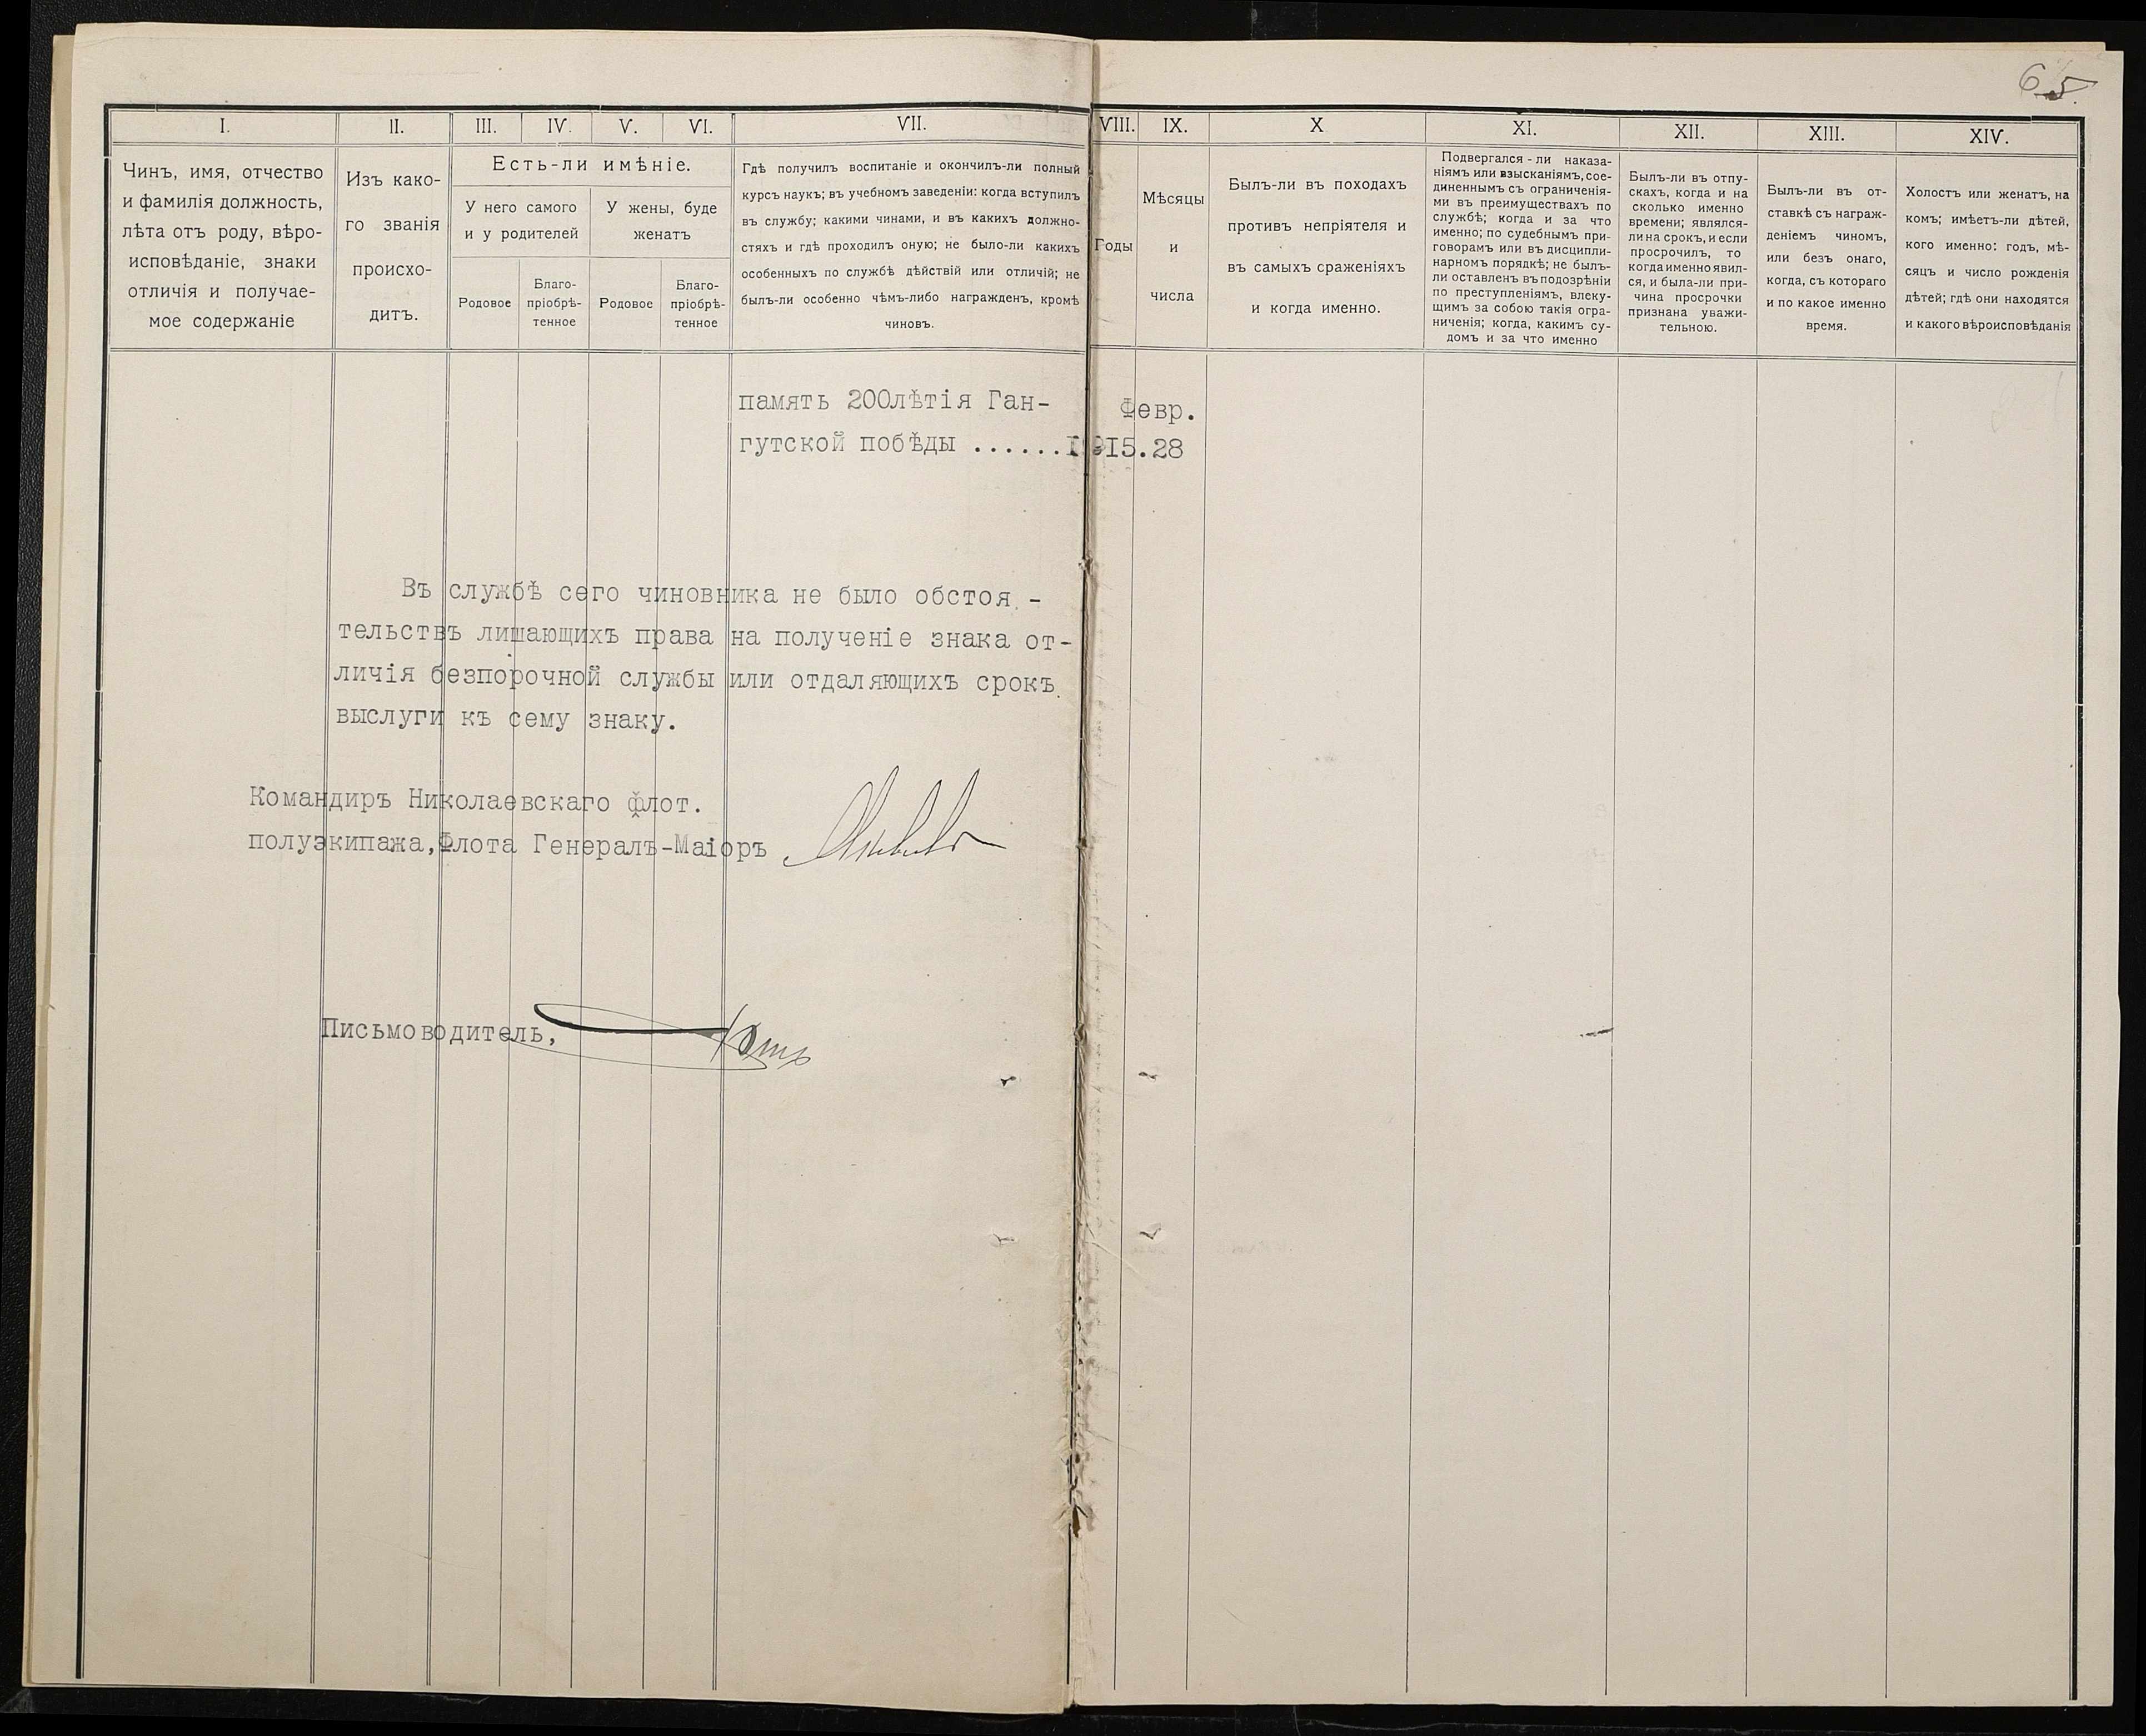 65.
I. II. III. IV. V. VI. VII. VIII. IX. X XI. XII. XIII. XIV.
Чинъ, имя, отчество
и фамилія должность,
лѣта отъ роду, вѣро-
исповѣданіе, знаки
отличія и получае-
мое содержаніе
Изъ како-
го званія
происхо-
дитъ.
Есть-ли имѣніе.
У него самого
и у родителей
У жены, буде
женатъ
Родовое
Благо-
пріобрѣ-
тенное
Родовое
Благо-
пріобрѣ-
тенное
Гдѣ получилъ воспитаніе и окончилъ-ли полный
курсъ наукъ; въ учебномъ заведеніи: когда вступилъ
въ службу; какими чинами, и въ какихъ должно-
стяхъ и гдѣ проходилъ оную; не было-ли какихъ
особенныхъ по службѣ дѣйствій или отличій; не
былъ-ли особенно чѣмъ-либо награжденъ, кромѣ
чиновъ.
Годы
Мѣсяцы
и
числа
Былъ-ли въ походахъ
противъ непріятеля и
въ самыхъ сраженіяхъ
и когда именно.
Подвергался-ли наказа-
ніямъ или взысканіямъ, сое-
диненнымъ съ ограниченія-
ми въ преимуществахъ по
службѣ; когда и за что
именно; по судебнымъ при-
говорамъ или въ дисципли-
нарномъ порядкѣ; не былъ-
ли оставленъ въ подозрѣніи
по преступленіямъ, влеку-
щимъ за собою такія огра-
ниченія; когда, какимъ су-
домъ и за что именно
Былъ-ли въ отпу-
скахъ, когда и на
сколько именно
времени; являлся-
ли на срокъ, и если
просрочилъ, то
когда именно явил-
ся, и была-ли при-
чина просрочки
признана уважи-
тельною.
Былъ-ли въ от-
ставкѣ съ награж-
деніемъ чиномъ,
или безъ онаго,
когда, съ котораго
и по какое именно
время.
Холостъ или женатъ, на
комъ; имѣетъ-ли дѣтей,
кого именно: годъ, мѣ-
сяцъ и число рожденія
дѣтей; гдѣ они находятся
и какого вѣроисповѣданія
память 200лѣтія Ган- Февр.
гутской побѣды ......1915.28
Въ службѣ сего чиновника не было обстоя-
тельствъ лишающихъ права на полученіе знака от-
личія безпорочной службы или отдаляющихъ срокъ
выслуги къ сему знаку.
Командиръ Николаевскаго флот.
полуэкипажа, Флота Генералъ-Маіоръ
Письмоводитель,